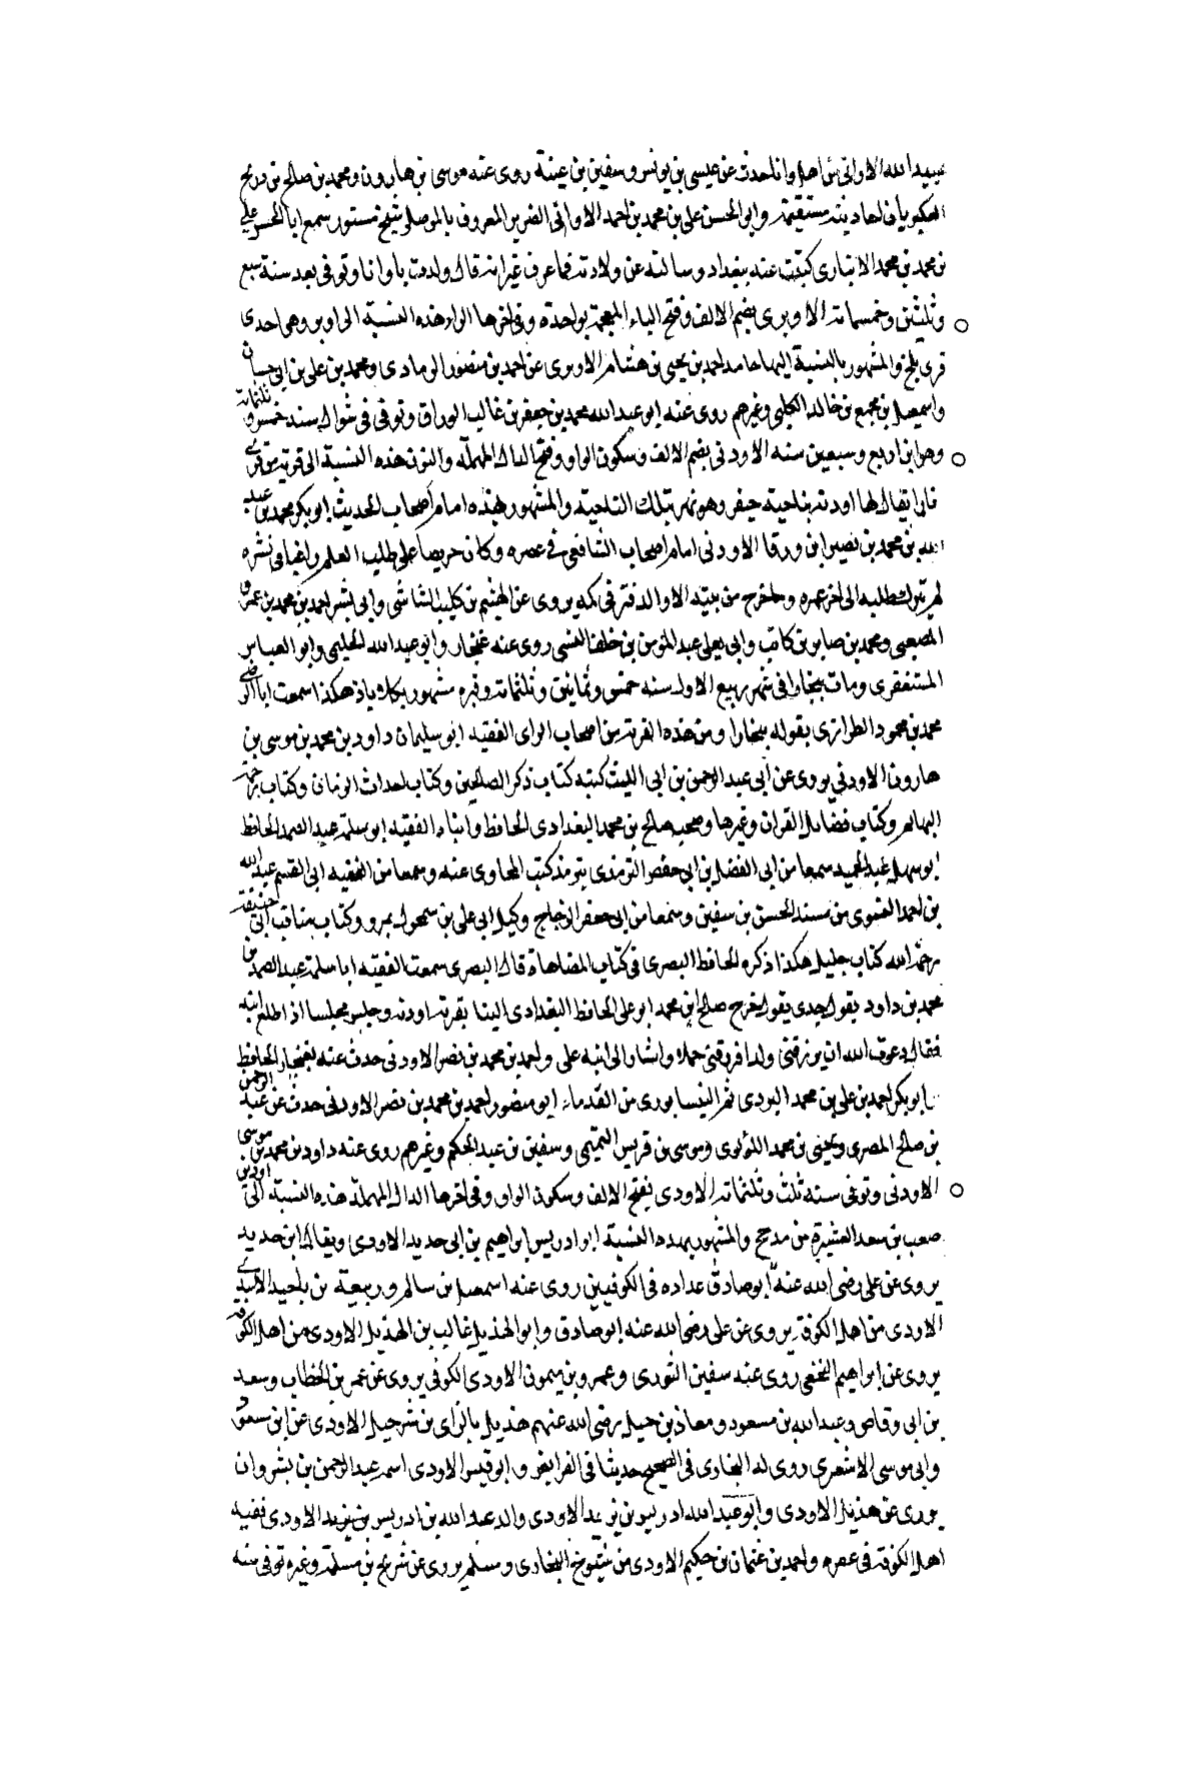 عبيد الله الاواني من اهل اوانا حدث عن عيسى بن يونس وسفين بن عيينة روى عنه موسى بن هارون ومحمد بن صالح بن ذريح
العكبريان احاديثه مستقيمة وابو الحسن علي بن محمد بن احمد الاواني الضرير المعروف بالموصلي شيخ مستور سمع ابا الحسن علي
بن محمد بن محمد الانباري كتبت عنه ببغداد وسالته عن ولادته فما عرف غير انه قال ولدت باوانا وتوفي بعد سنة سبع
وثلثين وخمسمائه الاوبري بضم الالف وفتح الباء المعجمة بواحدة وفي اخرها الراء هذه النسبة الى اوبر وهي احدى
قرى بلخ والمشهور بالنسبة اليها حامد احمد بن يحيى بن هشام الاوبري عن احمد بن منصور الرمادي ومحمد بن علي بن ابي حسان
واسمعيل بن مجمع بن خالد الكلبي وغيرهم روى عنه ابو عبد الله محمد بن جعفر بن غالب الوراق وتوفي في شوال سنه خمس وثلثمائة
وهو ابن اربع وسبعين سنه الاودني بضم الالف وسكون الواو وفتح الدال المهملة والنون هذه النسبة الى قرية من قرى
بخارا يقال لها اودنه بناحية جيفر وهو نهر بتلك الناحية والمشهور بهذه امام اصحاب الحديث ابو بكر محمد بن عبد
الله بن محمد بن نصير ابن ورقا الاودني امام اصحاب الشافعي في عصره وكان حريصا على طلب العلم راغبا في نشره
لم يترك طلبه الى اخر عمره وما خرج من بيته الا والدفتر في كمه يروى عن الهيثم بن كليب الشاشي وابي بشر احمد بن محمد بن عمرو
المصعبي ومحمد بن صابر بن كاتب وابي يعلى عبد المومن بن خلف النسفي روى عنه غنجار وابو عبد الله الحليمي وابو العباس
المستغفري ومات ببخارا في شهر ربيع الاول سنه خمس وثمانين وثلثمائة وقبره مشهور بكلاباذ هكذا سمعت ابا الرضى
محمد بن محمود الطرازي بقوله ببخارا ومن هذه القرية من اصحاب الراى الفقيه ابو سليمان داود بن محمد بن موسى بن
هارون الاودني يروى عن ابي عبد الرحمن بن ابي الليث كتبه كتاب ذكر الصالحين وكتاب احداث الزمان وكتاب
البهائم وكتاب فضايل القران وغيرها وصحب صالح بن محمد البغدادي الحافظ وابناه الفقيه ابو سلمة عبد الصمد الحافظ
ابو سهل عبد الحميد سمعا من ابي الفضل بن ابي حفص الترمذي بترمذ كتب المحاوى عنه وسمعا من الفقيه ابي القسم عبيد الله
بن احمد النسوى من مسند الحسن بن سفين وسمعا من ابي جعفر الزجاج وكيل ابي علي بن سمحول بمرو وكتاب مناقب ابي حنيفة
رحمه الله كتاب جليل هكذا ذكره الحافظ البصرى في كتاب المضاهاة قال البصرى سمعت الفقيه ابا سلمة عبد الصمد بن
محمد بن داود يقول جدى يقول خرج صالح ابن محمد ابو علي الحافظ البغدادى الينا بقرية اودنه وجلس مجلسا اذ اطلع ابنه
فقال دعوت الله ان يرزقني ولدا فرزقني جملا واشار الى ابنه علي واحمد بن محمد بن نصر الاودني حدث عنه بغنجار الحافظ
ابو بكر احمد بن علي بن محمد اليزدى ثم النيسابورى من القدماء ابو منصور احمد بن محمد بن نصر الاودني حدث عن عبد الرحمن
بن صالح المصرى ويحيى بن محمد اللؤلوى وموسى بن قريش التميمي وسفين بن عبد الحكم وغيرهم روى عنه داود بن محمد بن موسى
الاودني وتوفي سنه ثلث وثلثمائة الاودى بفتح الالف وسكون الواو وفي اخرها الدال المهملة هذه النسبة الى اود بن
صعب بن سعد العشيرة من مذحج والمشهور بهذه النسبة ابو ادريس ابراهيم بن ابي حديد الاودى ويقال ابن حديد
يروى عن علي رضى الله عنه ابو صادق عداده في الكوفيين روى عنه اسمعيل بن سالم وربيعة بن ناجيد الاسدى
الاودى من اهل الكوفة يروى عن علي رضى الله عنه ابو صادق وابو الهذيل غالب بن الهذيل الاودى من اهل الكوفة
يروى عن ابراهيم النخعي روى عنه سفين الثورى وعمرو بن ميمون الاودى الكوفي يروى عن عمر بن الخطاب وسعد
بن ابي وقاص وعبد الله بن مسعود ومعاذ بن جبل رضى الله عنهم هذيل بالزاى بن شرحبيل الاودى عن ابن مسعود
وابي موسى الاشعرى روى له البخارى في الصحيح حديثا في الفرايض وابو قيس الاودى اسمه عبد الرحمن بن ثروان
يروى عن هذيل الاودى وابو عبد الله ادريس بن يزيد الاودى والد عبد الله بن ادريس بن يزيد الاودى فقيه
اهل الكوفة في عصره واحمد بن عثمان بن حكيم الاودى من شيوخ البخارى ومسلم يروى عن شريح بن مسلمة وغيره توفي سنه